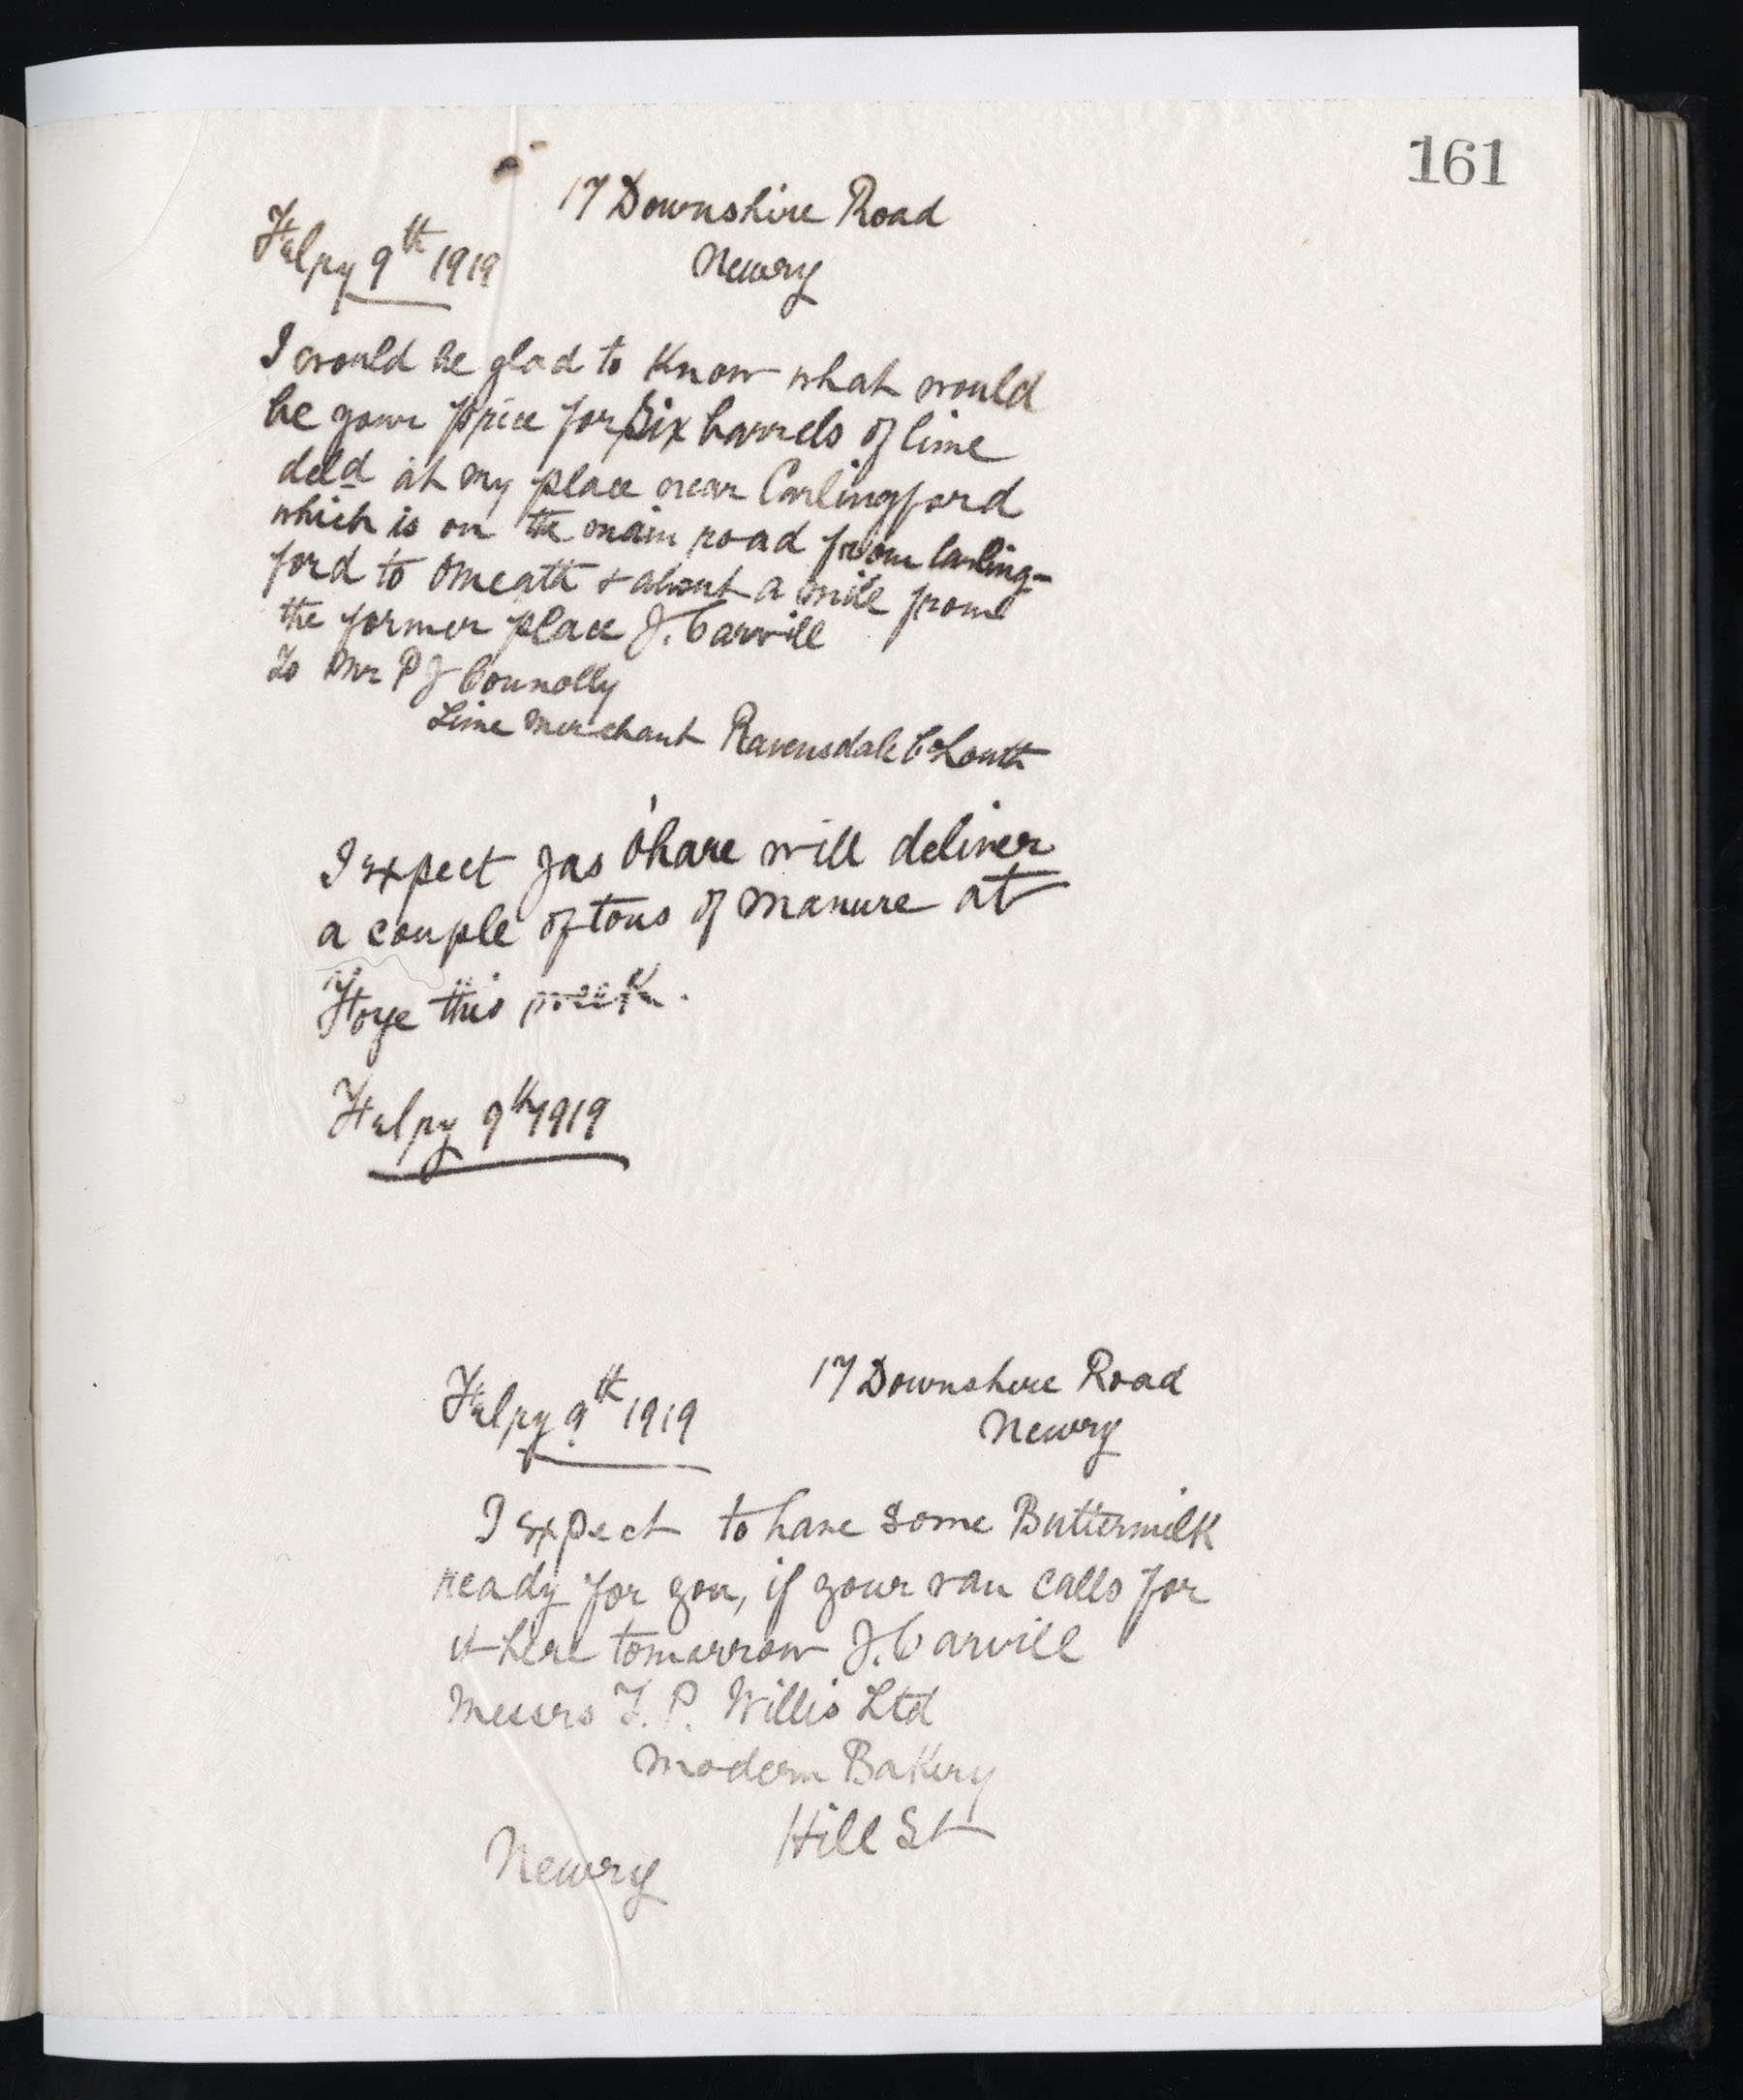 161
17 Downshire Road
Febry 9th 1919
Newry
I would be glad to know what would
be your price for Six barrels of lime
deld at my place near Carlingford
which is on the main road from Carling-
ford to Omeath & about a mile from
the former place J. Carvill
To Mr P J Connolly
Lime Merchant Ravensdale Co Louth
I expect Jas O'hare will deliver
a couple of tons of manure at
this week.
Febry 9th 1919
17 Downshire Road
Febry 9th 1919
Newry
I expect to have some Buttermilk
ready for you, if your van calls for
it here tomorrow J. Carvill
Messrs P. Willis Ltd
Modern Bakery
Hill St
Newry